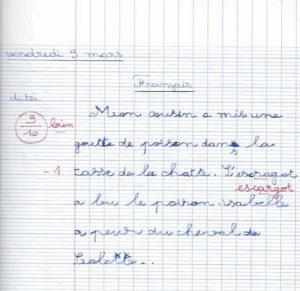 vendredi 9 mars
Français
dictée
9/10 bien
Mon cousin a mis une
goutte de poison dans la
-1 tasse de la chatte. L'escragot
escargot
a bu le poison. isabelle
a peur du cheval de
Colette.